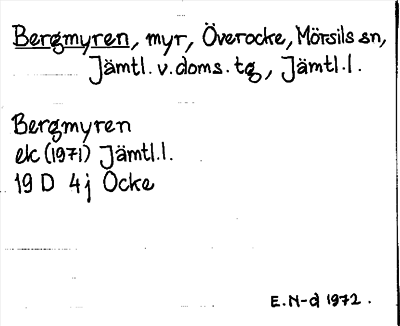 Bergmyren, myr, Överocke, Mörsils sn,
Jämtl. v. doms. tg, Jämtl. l.
Bergmyren
ek (1971) Jämtl. l.
19 D 4 j Ocke
E. N-d 1972.